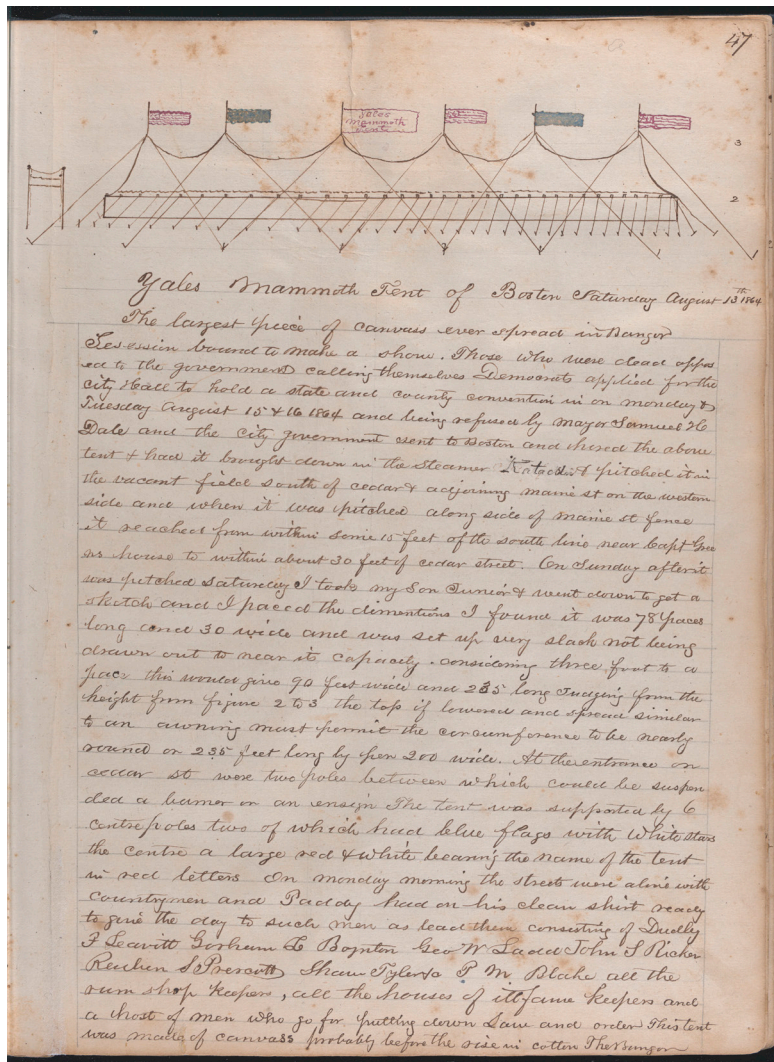 47
Yales
Mammoth
Tent
3
2
Yales Mammoth Tent of Boston Saturday August 13th 1864
The largest piece of canvass ever spread in Bangor
Sesession bound to make a show. Those who were dead oppos
ed to the government calling themselves Democrats applied for the
City Hall to hold a state and county convention in on monday &
Tuesday August 15 & 16 1864 and being refused by mayor Samuel H
Dale and the city government sent to Boston and hired the above
tent & had it brought down in the Steamer Katadin & pitched it in
the vacant field south of cedar & adjoining maine st on the western
side and when it was pitched along side of maine st fence
it reached from within some 15 feet of the south line near Capt Gree
ns house to within about 30 feet of cedar street. On Sunday after it
was pitched Saturday I took my Son Junior & went down to get a
sketch and I paced the dimentions I found it was 78 paces
long and 30 wide and was set up very slack not being
drawn out to near its capacity. considering three foot to a
pace this would give 90 feet wide and 235 long Judging from the
height from figure 2 to 3 the top if lowered and spread similar
to an awning must permit the circumference to be nearly
round or 235 feet long by per 200 wide. At the entrance on
cedar st were two poles between which could be suspen
ded a banner or an ensign The tent was supported by 6
centre poles two of which had blue flags with White stars
the centre a large red & white bearing the name of the tent
in red letters On monday morning the streets were alive with
countrymen and Paddy had on his clean shirt ready
to give the day to such men as lead them consisting of Dudley
F Leavitt Gorham L Boynton Geo W Ladd John S Ricker
Reuben S Prescott Shaw Tyler & P M Blake all the
rum shop keepers, all the houses of ill fame keepers and
a host of men who go for putting down Law and order This tent
was made of canvass probably before the rise in cotton The Bangor